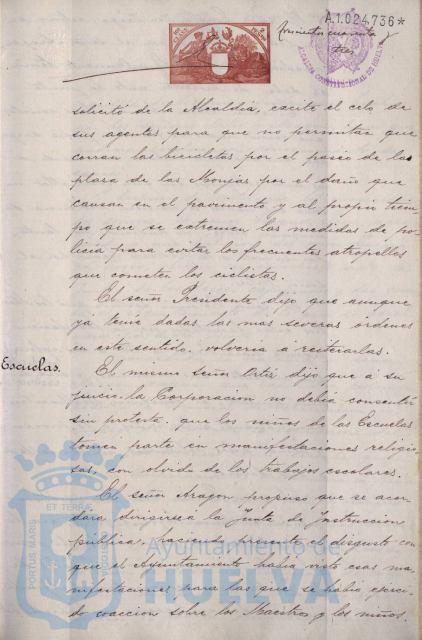 A.1.024,736*
Trescientos cuarenta y
tres
ALCALDIA CONSTITUCIONAL DE HUELVA
solicitó de la Alcaldia, excite el celo de
sus agentes para que no permitan que
corran las bicicletas por el paseo de la
plaza de las Monjas por el daño que
causan en el pavimento y al propio tiem-
po que se extremen las medidas de po-
licia para evitar los frecuentes atropellos
que cometen los ciclistas.
El señor Presidente dijo que aunque
ya tenia dadas las mas severas ordenes
en este sentido, volveria á reiterarlas.
Escuelas.
El mismo señor Ortiz dijo que á su
juicio la Corporacion no debia consentir
sin protesta, que los niños de las Escuelas
tomen parte en manifestaciones religio-
sas, con olvido de los trabajos escolares.
El señor Aragon propuso que se acor-
dara dirigirse á la Junta de Instruccion
pública, haciendo presente el disgusto con
que el Ayuntamiento habia visto esas ma-
nifestaciones, para las que se habia ejerci-
do coaccion sobre los Maestros y los niños.
PORTUS MARIS
ET TERRAE
CUSTODIA
Ayuntamiento de
HUELVA